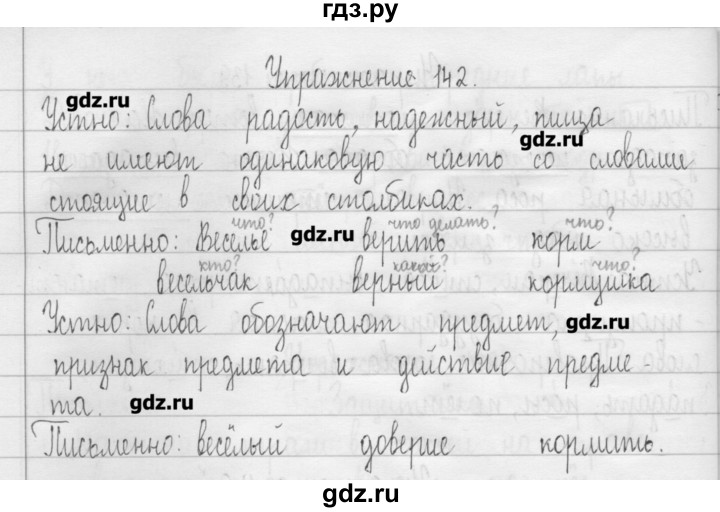 гдз.ру
Упражнение 142.
gdz.ru
Устно: Слова радость, надежный, пища
gdz.ru
не имеют одинаковую часть со словами
стоящие в своих столбиках.
что? что делать? что?
Письменно: Веселье gdz.ru верить корм
кто? какой? что?
весельчак верный кормушка
Устно: Слова обозначают предмет, gdz.ru
признак предмета и действие предме
та. gdz.ru
Письменно: весёлый доверие кормить.
gdz.ru